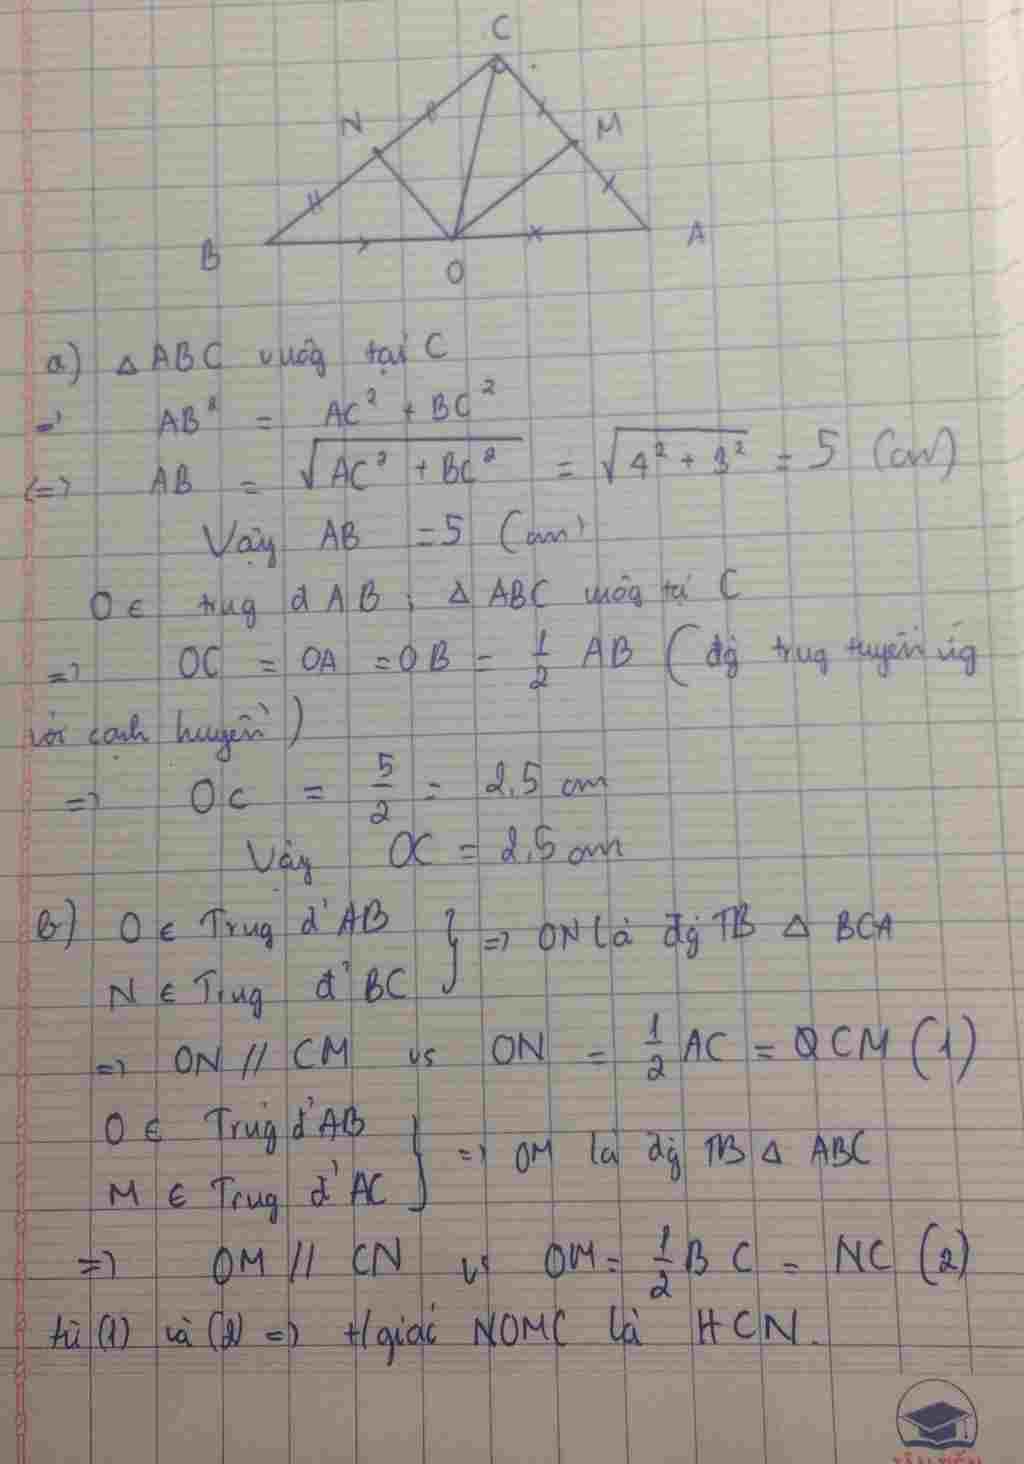 C
N
M
B
O
A
a) Δ ABC vuôg tại C
=> AB² = AC² + BC²
<=> AB = √AC² + BC² = √4² + 3² = 5 (cm)
Vậy AB = 5 (cm)
O ∈ trug đ AB ; Δ ABC vuôg tại C
=> OC = OA = OB = 1/2 AB ( đg trug tuyến ứg
với cạnh huyền )
=> OC = 5/2 = 2,5 cm
Vậy OC = 2,5 cm
b) O ∈ Trug đ' AB } => ON là đg TB Δ BCA
N ∈ Trug đ' BC
=> ON // CM vs ON = 1/2 AC = CM (1)
O ∈ Trug đ' AB } => OM là đg TB Δ ABC
M ∈ Trug đ' AC
=> OM // CN vs OM = 1/2 BC = NC (2)
từ (1) và (2) => t/giác NOMC là HCN.